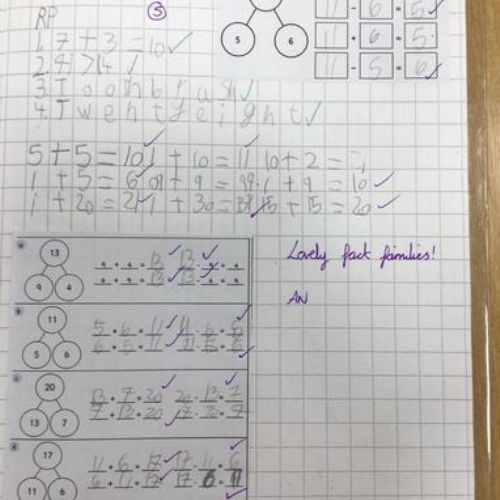 RP
5
1. 7 + 3 = 10
2. 41 > 14
3. Toothbrush
4. Twenty eight
5 6
11 - 6 = 5
11 6 = 5
11 - 5 = 6
5 + 5 = 10 1 + 10 = 11 10 + 2 =
1 + 5 = 6 + 9 = 1 + 9 = 10
1 + 20 = 21 1 + 30 = 15 + 15 = 20
Lovely fact families!
AN
a
13
9 4
13 13
13 13
b
11
5 6
5 + 6 = 11 11 - 6 = 5
6 + 5 = 11
c
20
13 7
13 + 7 = 20 20 - 13 = 7
7 + 13 = 20
d
17
11 6
11 + 6 = 17 17 - 11 = 6
6 + 11 = 17 17 6 11